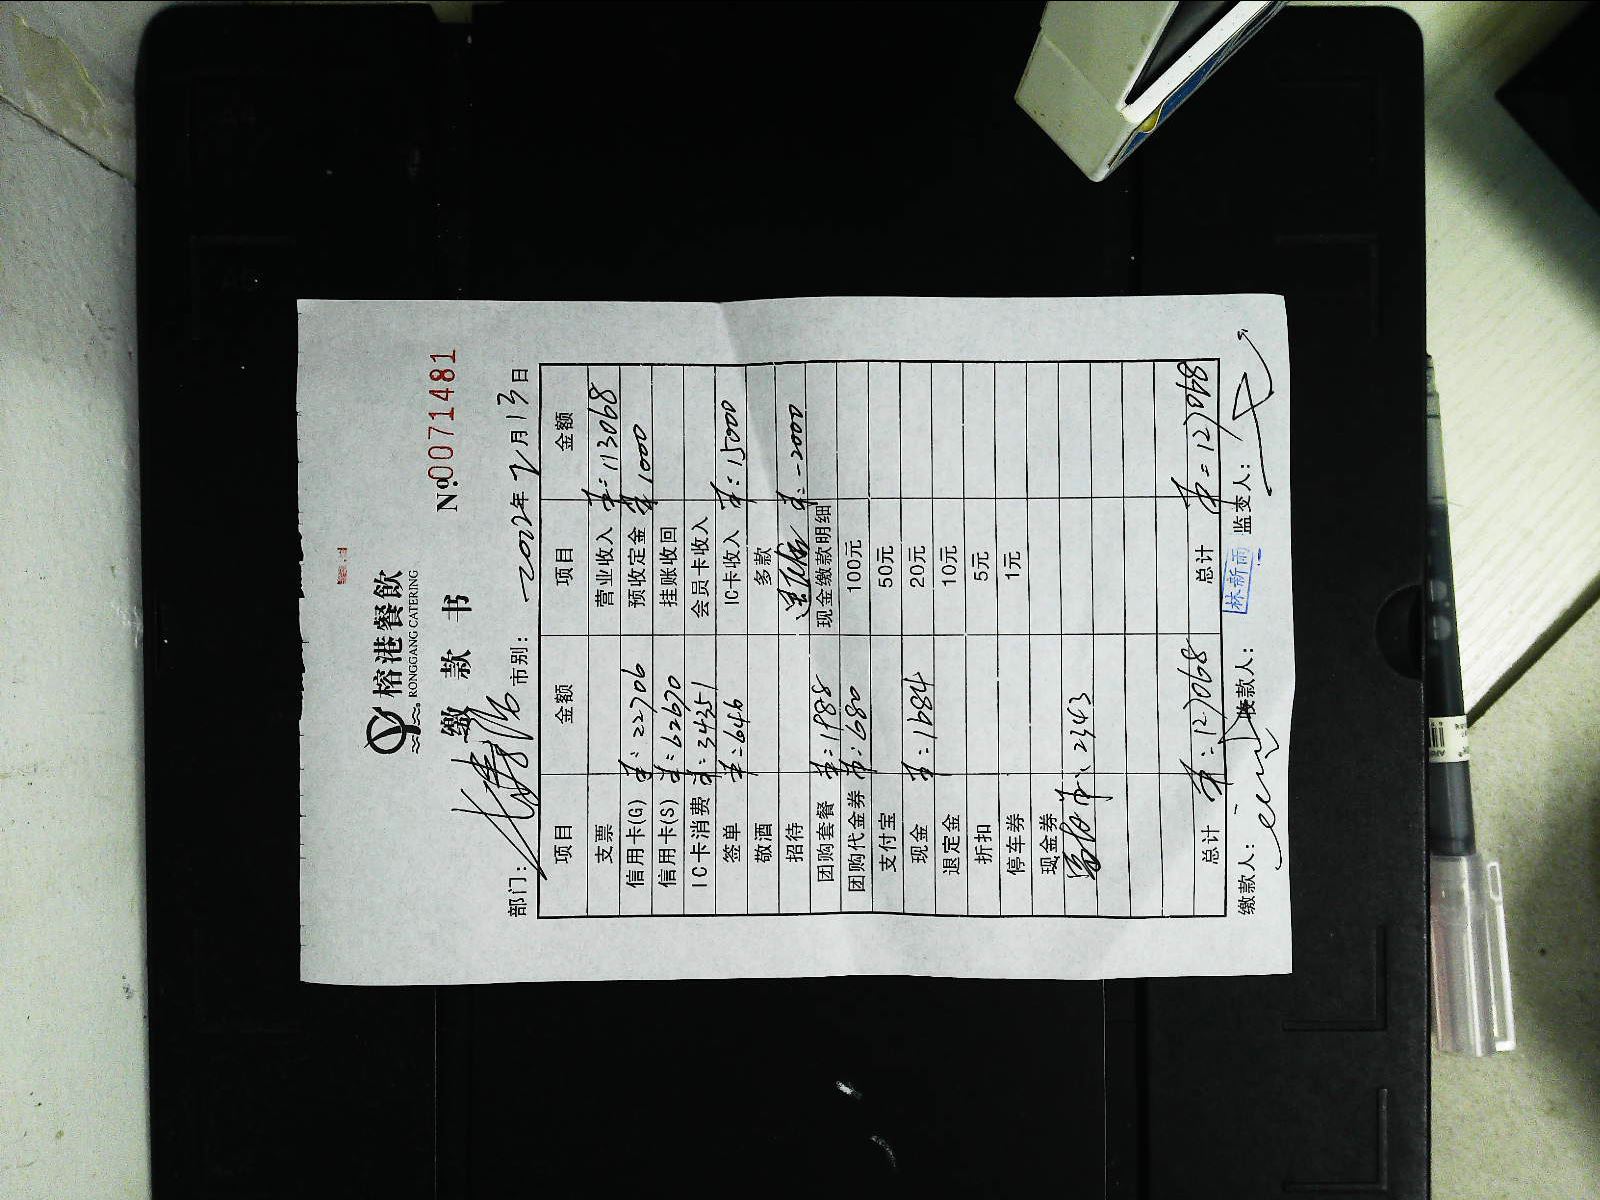 榕港餐飲
RONGGANG CATERING
缴 款 书
Nº.0071481
部门: 市别: 2022年2月13日
项目 金额 项目 金额
支票 营业收入 ¥:113068
信用卡(G) ¥:22706 预收定金 ¥:1000
信用卡(S) ¥:62670 挂账收回
IC卡消费 ¥:34351 会员卡收入
签单 ¥:646 IC卡收入 ¥:15000
敬酒 多款
招待 ¥:-2000
团购套餐 ¥:1988 现金缴款明细
团购代金券 ¥:680 100元
支付宝 50元
现金 ¥:1684 20元
退定金 10元
折扣 5元
停车券 1元
现金券
¥:2343
总计 ¥:127068 总计 ¥:127068
缴款人: 收款人: 林新雨 监交人: